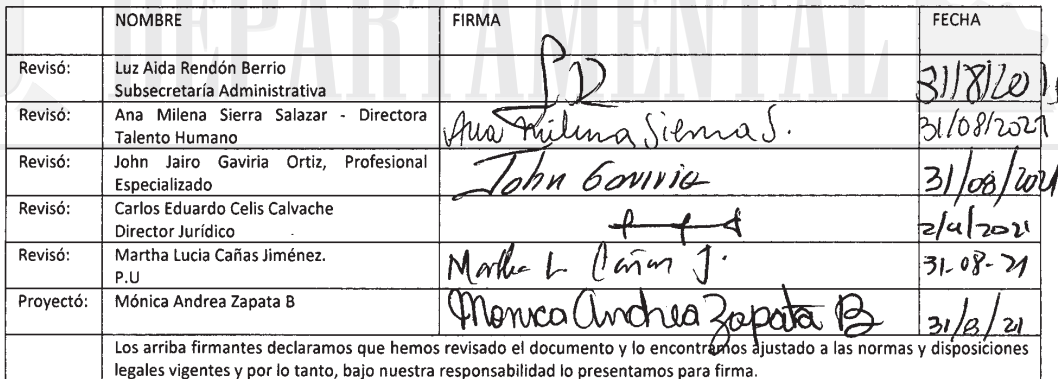 DEPARTAMENTAL
NOMBRE FIRMA FECHA
Revisó: Luz Aida Rendón Berrio
Subsecretaría Administrativa 31/8/2021
Revisó: Ana Milena Sierra Salazar - Directora
Talento Humano Ana Milena Sierra S. 31/08/2021
Revisó: John Jairo Gaviria Ortiz, Profesional
Especializado John Gaviria 31/08/2021
Revisó: Carlos Eduardo Celis Calvache
Director Jurídico
Revisó: Martha Lucia Cañas Jiménez.
P.U Martha L Cañas J. 31-08-21
Proyectó: Mónica Andrea Zapata B Monica Andrea Zapata B 31/8/21
Los arriba firmantes declaramos que hemos revisado el documento y lo encontramos ajustado a las normas y disposiciones
legales vigentes y por lo tanto, bajo nuestra responsabilidad lo presentamos para firma.